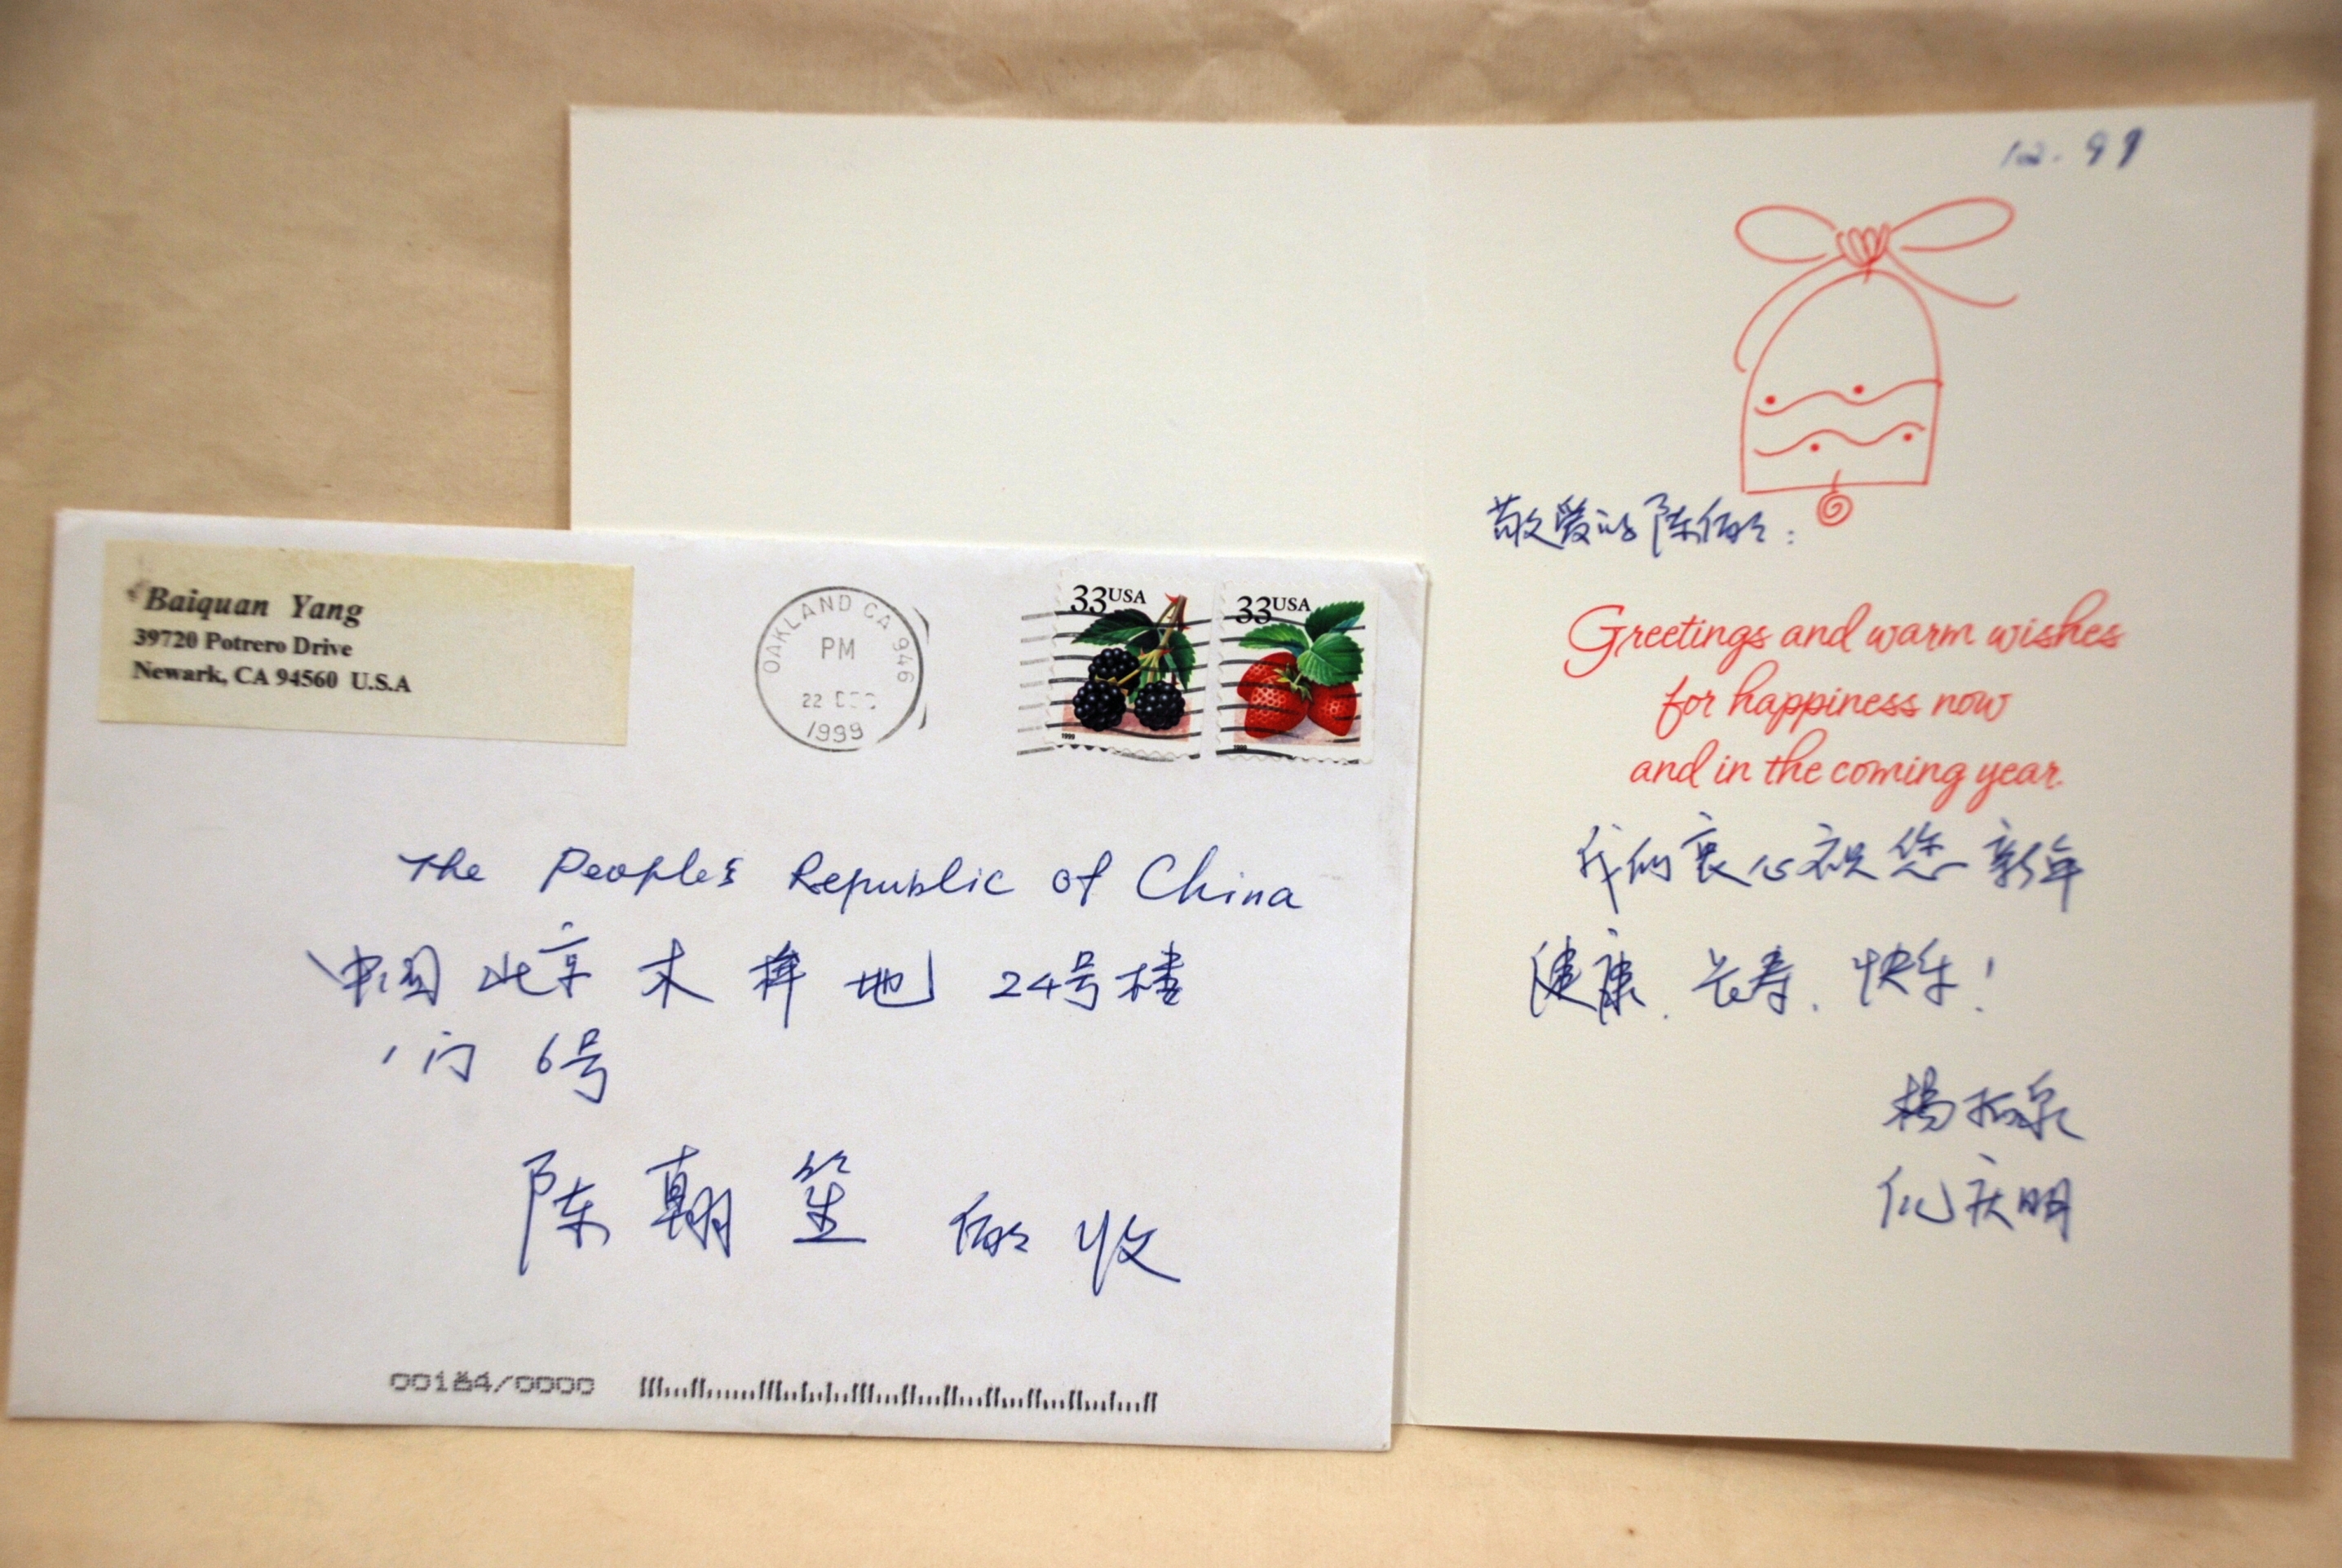 Baiquan Yang
39720 Potrero Drive
Newark, CA 94560 U.S.A
OAKLAND CA 946
PM
22 DEC
1999
33USA
1999
33USA
1999
The People's Republic of China
中国 北京 木樨地 24号楼
1门 6号
陈翰笙 伯伯 收
00184/0000
12.99
敬爱的陈伯伯:
Greetings and warm wishes
for happiness now
and in the coming year.
我们衷心祝您新年
健康、长寿、快乐!
杨柏泉
倪庆明